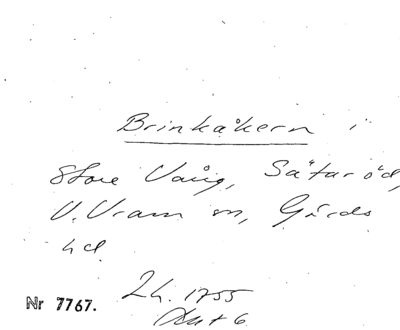 Brinkåkern i
Store Vång, Sätaröd,
V. Vram sn, Gärds
hd.
Lh. 1755
Akt 6
Nr 7767.